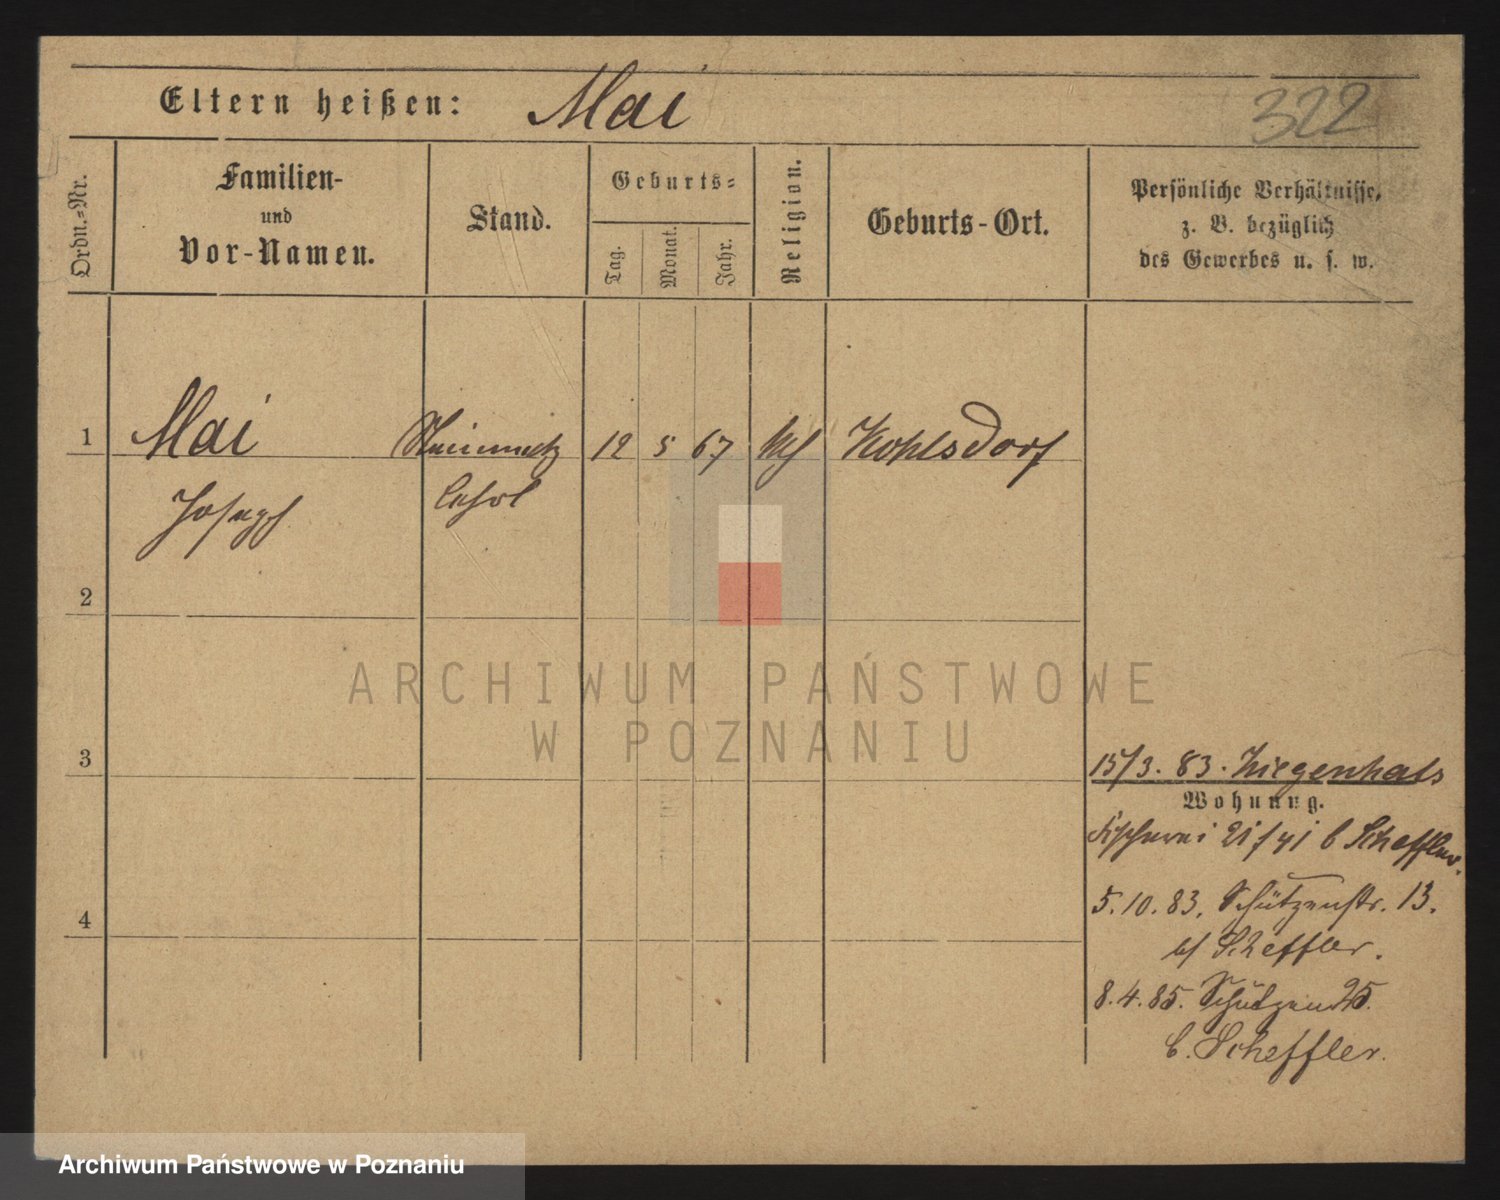 Eltern heißen: Mai
322
Ordn.=Nr.
Familien-
und
Vor-Namen.
Stand.
Geburts=
Tag.
Monat.
Jahr.
Religion.
Geburts-Ort.
Persönliche Verhältnisse,
z. B. bezüglich
des Gewerbes u. s. w.
1 Mai Steinmetz 12 5 67 kth Kohlsdorf
Joseph Lehrl
2
3
4
15/3. 83. Ziegenhals
Wohnung.
Fischerei 21/41 b Scheffler.
5.10.83. Schützenstr. 13.
b/ Scheffler.
8.4.85. Schützen 25.
b. Scheffler.
ARCHIWUM PAŃSTWOWE
W POZNANIU
Archiwum Państwowe w Poznaniu